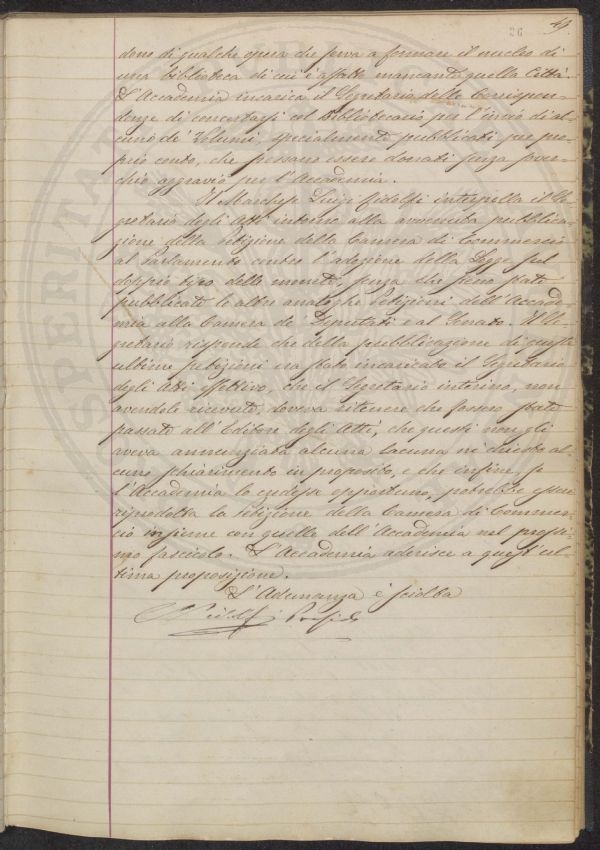 26 49.
dono di qualche opera che serva a formare il nucleo di
una biblioteca di cui è affatto mancante quella Città.
L'Accademia incarica il Segretario delle Corrispon-
denze di concertarsi col Bibliotecario per l'invio di al-
cuno de' Volumi, specialmente pubblicati per pro-
prio conto, che possano essere donati senza sover-
chio aggravio per l'Accademia.
Il Marchese Luigi Ridolfi interpella il Se-
gretario degli Atti intorno alla avvenuta pubblica-
zione della Petizione della Camera di Commercio
al Parlamento contro l'adozione della Legge sul
doppio tipo delle monete, senza che sieno state
pubblicate le altre analoghe Petizioni dell'Accade-
mia alla Camera de' Deputati e al Senato. Il Se-
gretario risponde che della pubblicazione di queste
ultime petizioni era stato incaricato il Segretario
degli Atti effettivo, che il Segretario interino, non
avendole ricevute, doveva ritenere che fossero state
passate all'Editore degli Atti, che questi non gli
aveva annunziata alcuna lacuna nè chiesto al-
cuno schiarimento in proposito, e che infine, se
l'Accademia lo credesse opportuno, potrebbe essere
riprodotta la Petizione della Camera di Commer-
cio insieme con quelle dell'Accademia nel prossi-
mo fascicolo. L'Accademia aderisce a quest'ul-
tima proposizione.
L'Adunanza è sciolta
Ridolfi